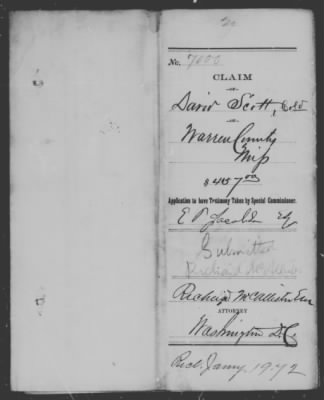 No. 7000
CLAIM
OF
David Scott, Cold
OF
Warren County
Miss
$ 457 00
Application to have Testimony Taken by Special Commissioner.
E P Jacobson Esq
Submitted
Richard McAllister
Richard McAllister Esq
ATTORNEY
Washington D.C.
Recd. Jany. 19. 72